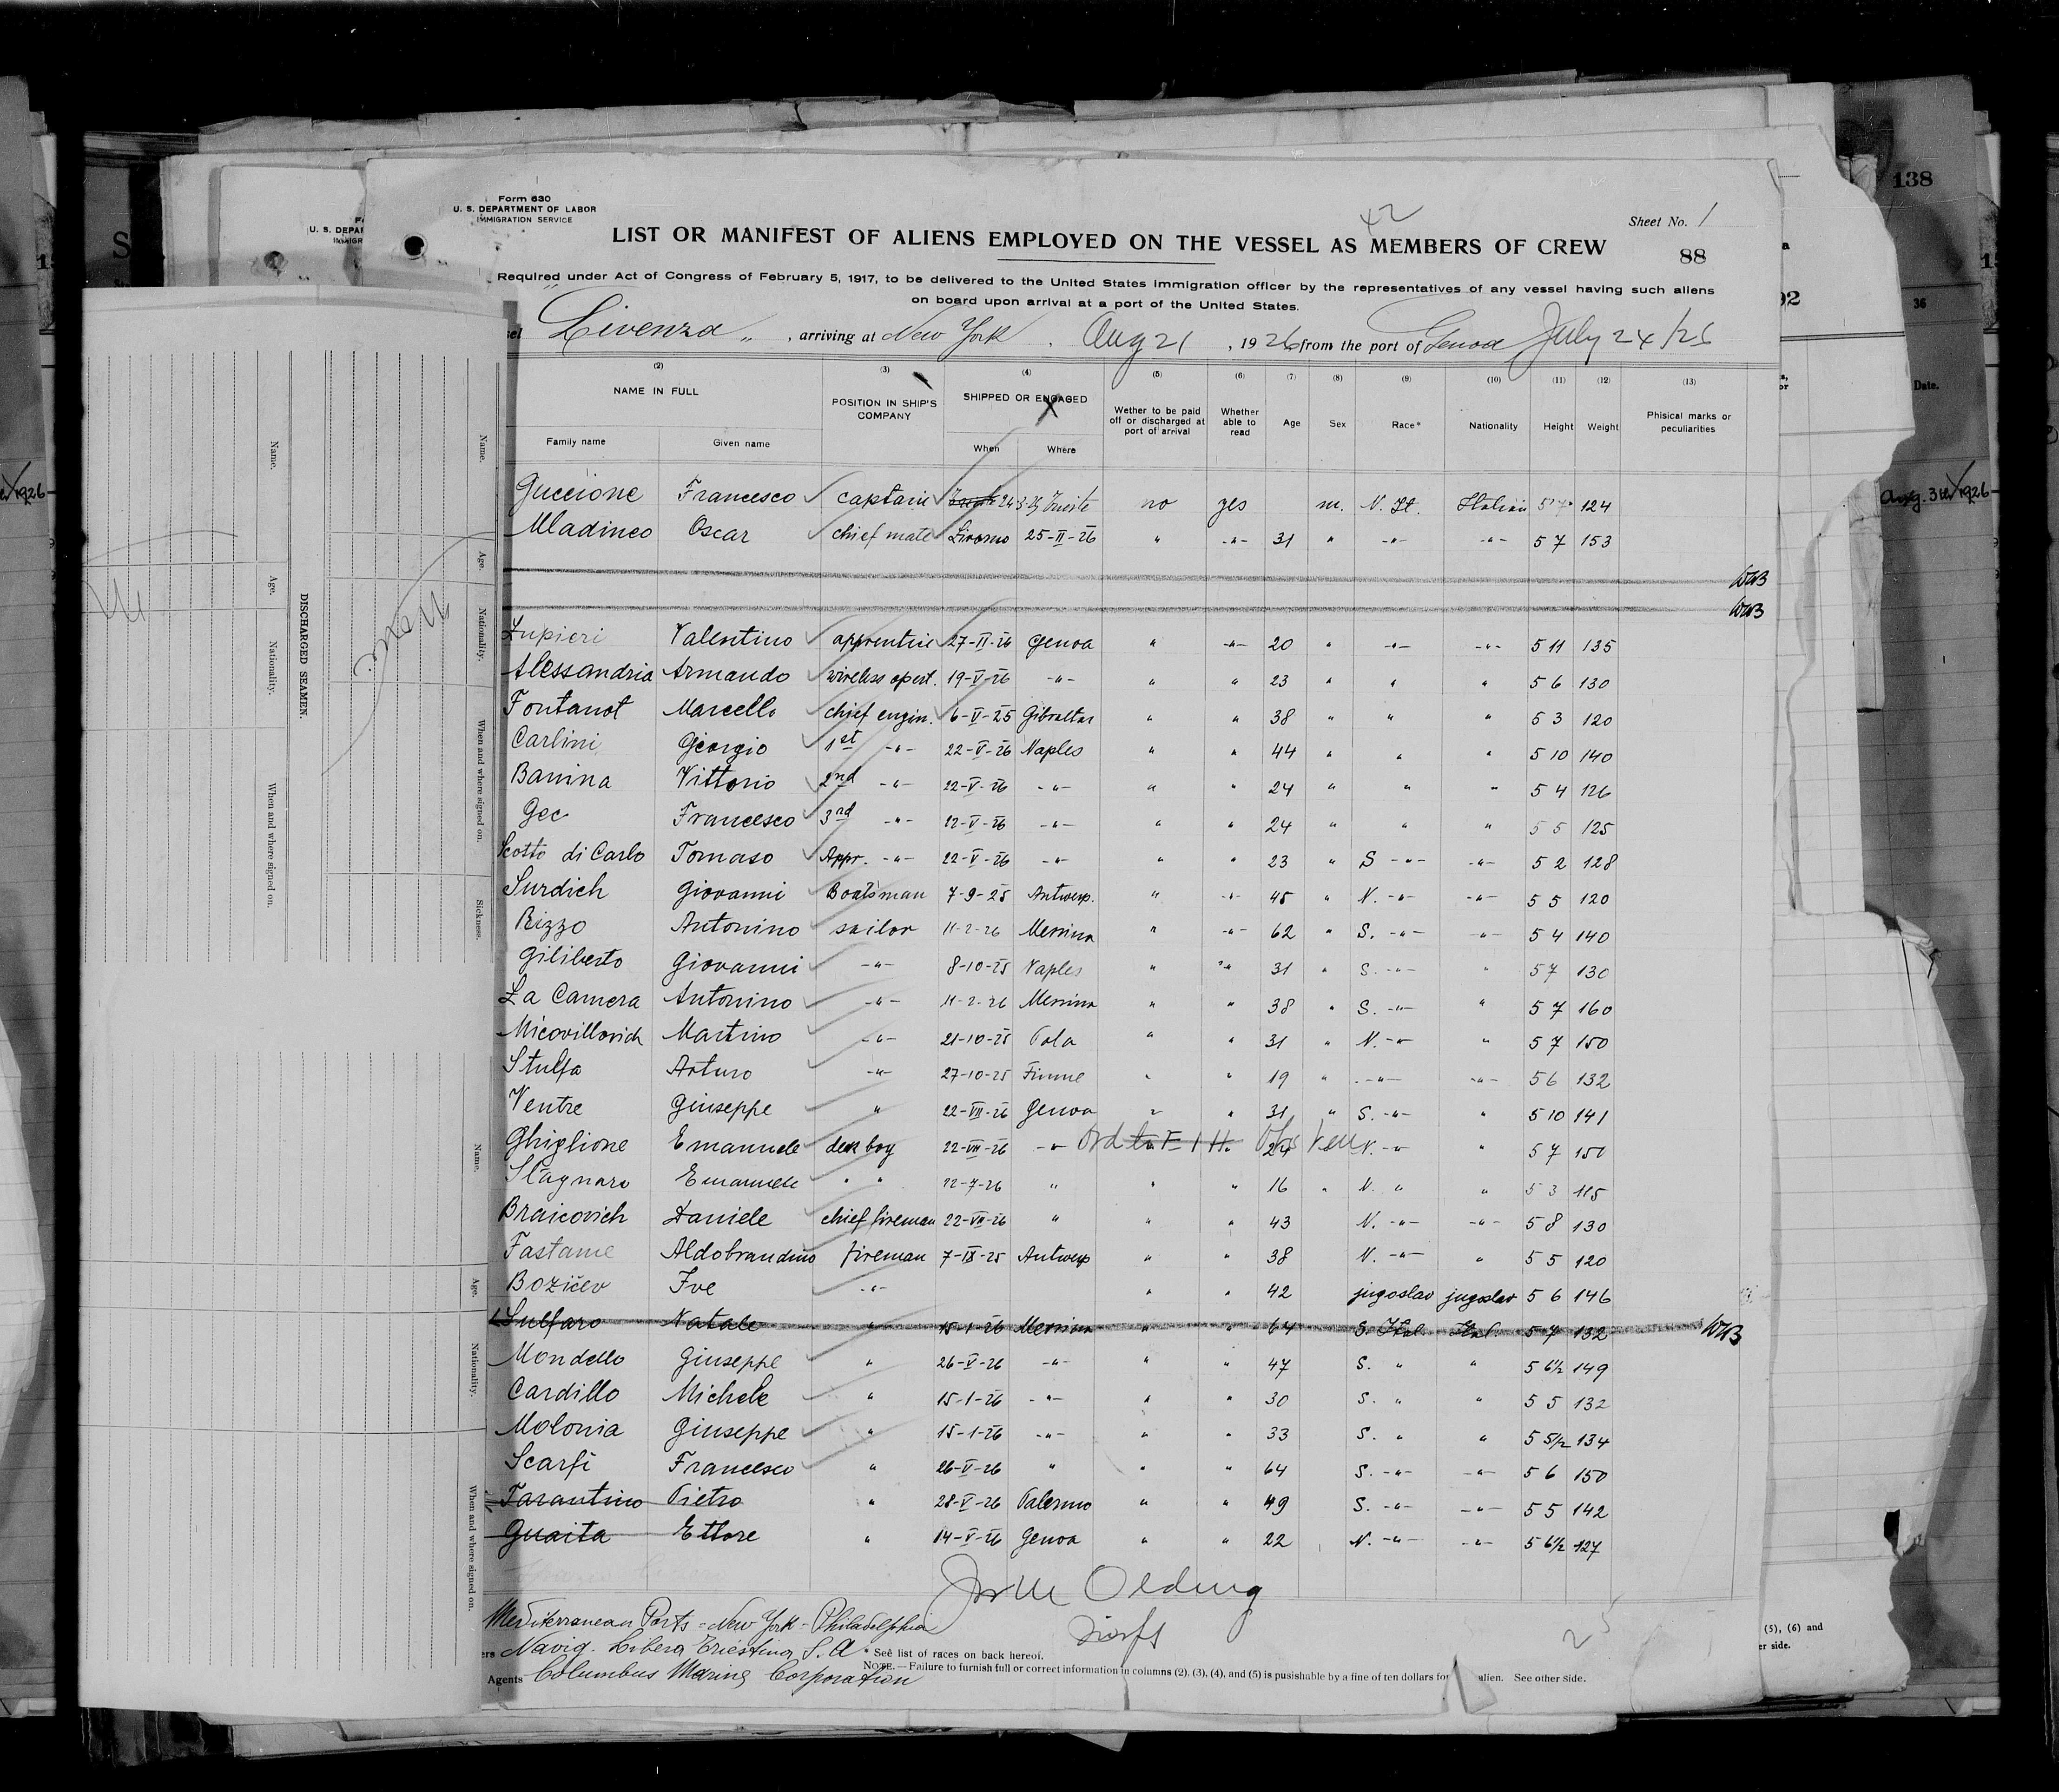 138
Form 630
U. S. DEPARTMENT OF LABOR
IMMIGRATION SERVICE
U. S. DEPAR
42
Sheet No. 1
LIST OR MANIFEST OF ALIENS EMPLOYED ON THE VESSEL AS MEMBERS OF CREW
88
Required under Act of Congress of February 5, 1917, to be delivered to the United States Immigration officer by the representatives of any vessel having such aliens
on board upon arrival at a port of the United States.
sel "Livenza", arriving at New York. Aug 21, 1926 from the port of Genoa July 24/26
92
36
Date.
(2) (3) (4) (5) (6) (7) (8) (9) (10) (11) (12) (13)
NAME IN FULL POSITION IN SHIP'S COMPANY SHIPPED OR ENGAGED Wether to be paid off or discharged at port of arrival Whether able to read Age Sex Race* Nationality Height Weight Phisical marks or peculiarities
Family name Given name When Where
Guccione Francesco captain 24-3-25 Trieste no yes m. N. It. Italian 5 7 124
Mladineo Oscar chief mate Livorno 25-II-26 " -"- 31 " -"- -"- 5 7 153
WWB
WWB
Zupieri Valentino apprentice 27-II-26 Genoa " -"- 20 " -"- -"- 5 11 135
Alessandria Armando wireless opert. 19-V-26 -"- " " 23 " " " 5 6 130
Fontanot Marcello chief engin. 6-V-25 Gibraltar " " 38 " " " 5 3 120
Carlini Giorgio 1st -"- 22-V-26 Naples " " 44 " " " 5 10 140
Banina Vittorio 2nd -"- 22-V-26 -"- " " 24 " " " 5 4 126
Gec Francesco 3rd -"- 12-V-26 -"- " " 24 " " " 5 5 125
Scotto di Carlo Tomaso Appr. -"- 22-V-26 -"- " " 23 " S -"- -"- 5 2 128
Surdich Giovanni Boatsman 7-9-25 Antwerp. " -"- 45 " N. -"- -"- 5 5 120
Rizzo Antonino sailor 11-2-26 Messina " -"- 62 " S. -"- -"- 5 4 140
Giliberto Giovanni -"- 8-10-25 Naples " " 31 " S. -"- " 5 7 130
La Camera Antonino -"- 11-2-26 Messina " " 38 " S. -"- " 5 7 160
Micovillovich Martino -"- 21-10-25 Pola " " 31 " N. -"- " 5 7 150
Stulfa Arturo -"- 27-10-25 Fiume " " 19 " -"- -"- 5 6 132
Ventre Giuseppe " 22-VII-26 Genoa " " 31 " S. -"- " 5 10 141
Ghiglione Emanuele deck boy 22-VII-26 -"- 24 N. -"- " 5 7 150
Stagnaro Emanuele " " 22-7-26 " " " 16 " N. " " 5 3 115
Braicovich Daniele chief fireman 22-VII-26 " " " 43 N. -"- -"- 5 8 130
Fastame Aldobrandino fireman 7-IX-25 Antwerp " " 38 N. -"- " 5 5 120
Božičev Ive -"- " " 42 jugoslav jugoslav 5 6 146
Sulfaro Natale " 15-1-26 Messina " " 64 S. Ital. Ital. 5 7 132 WWB
Mondello Giuseppe " 26-V-26 -"- " " 47 S. " " 5 6½ 149
Cardillo Michele " 15-1-26 -"- " " 30 S. " " 5 5 132
Molonia Giuseppe " 15-1-26 -"- " " 33 S. " " 5 5½ 134
Scarfi Francesco " 26-V-26 " " " 64 S. -"- -"- 5 6 150
Tarantino Pietro " 28-V-26 Palermo " " 49 S. -"- -"- 5 5 142
Guaita Ettore " 14-V-26 Genoa " " 22 N. -"- -"- 5 6½ 127
Mediterranean Ports - New York - Philadelphia
ers Navig. Libera Triestina S.A * See list of races on back hereof.
Agents Columbus Marine Corporation
NOTE.—Failure to furnish full or correct information in columns (2), (3), (4), and (5) is pusishable by a fine of ten dollars for alien. See other side.
25
(5), (6) and
er side.
Aug. 31st 1926
DISCHARGED SEAMEN.
Name. Age. Nationality. When and where signed on. Sickness.
Name. Age. Nationality. When and where signed on.
Name. Age. Nationality. When and where signed on.